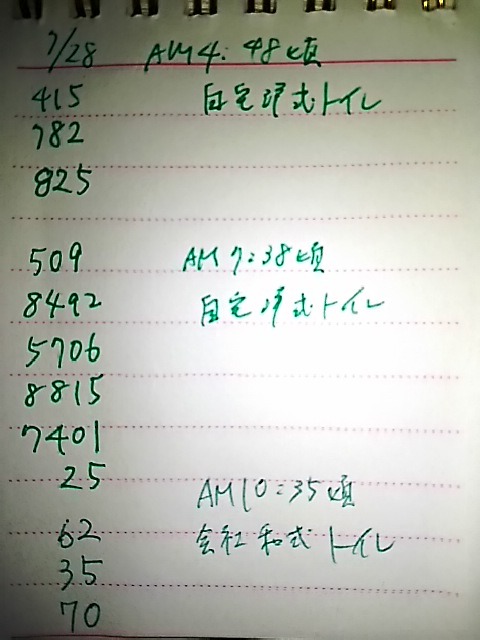 7/28 AM4:48頃
415 自宅洋式トイレ
782
825
509 AM7:38頃
8492 自宅洋式トイレ
5706
8815
7401
25 AM10:35頃
62 会社和式トイレ
35
70